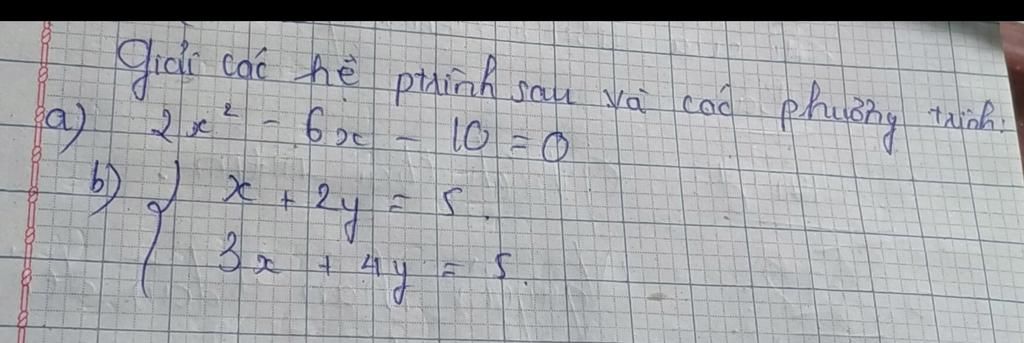 Giải các hệ ptrình sau và các phương trình:
a) 2x² - 6x - 10 = 0
b) { x + 2y = 5.
3x + 4y = 5.